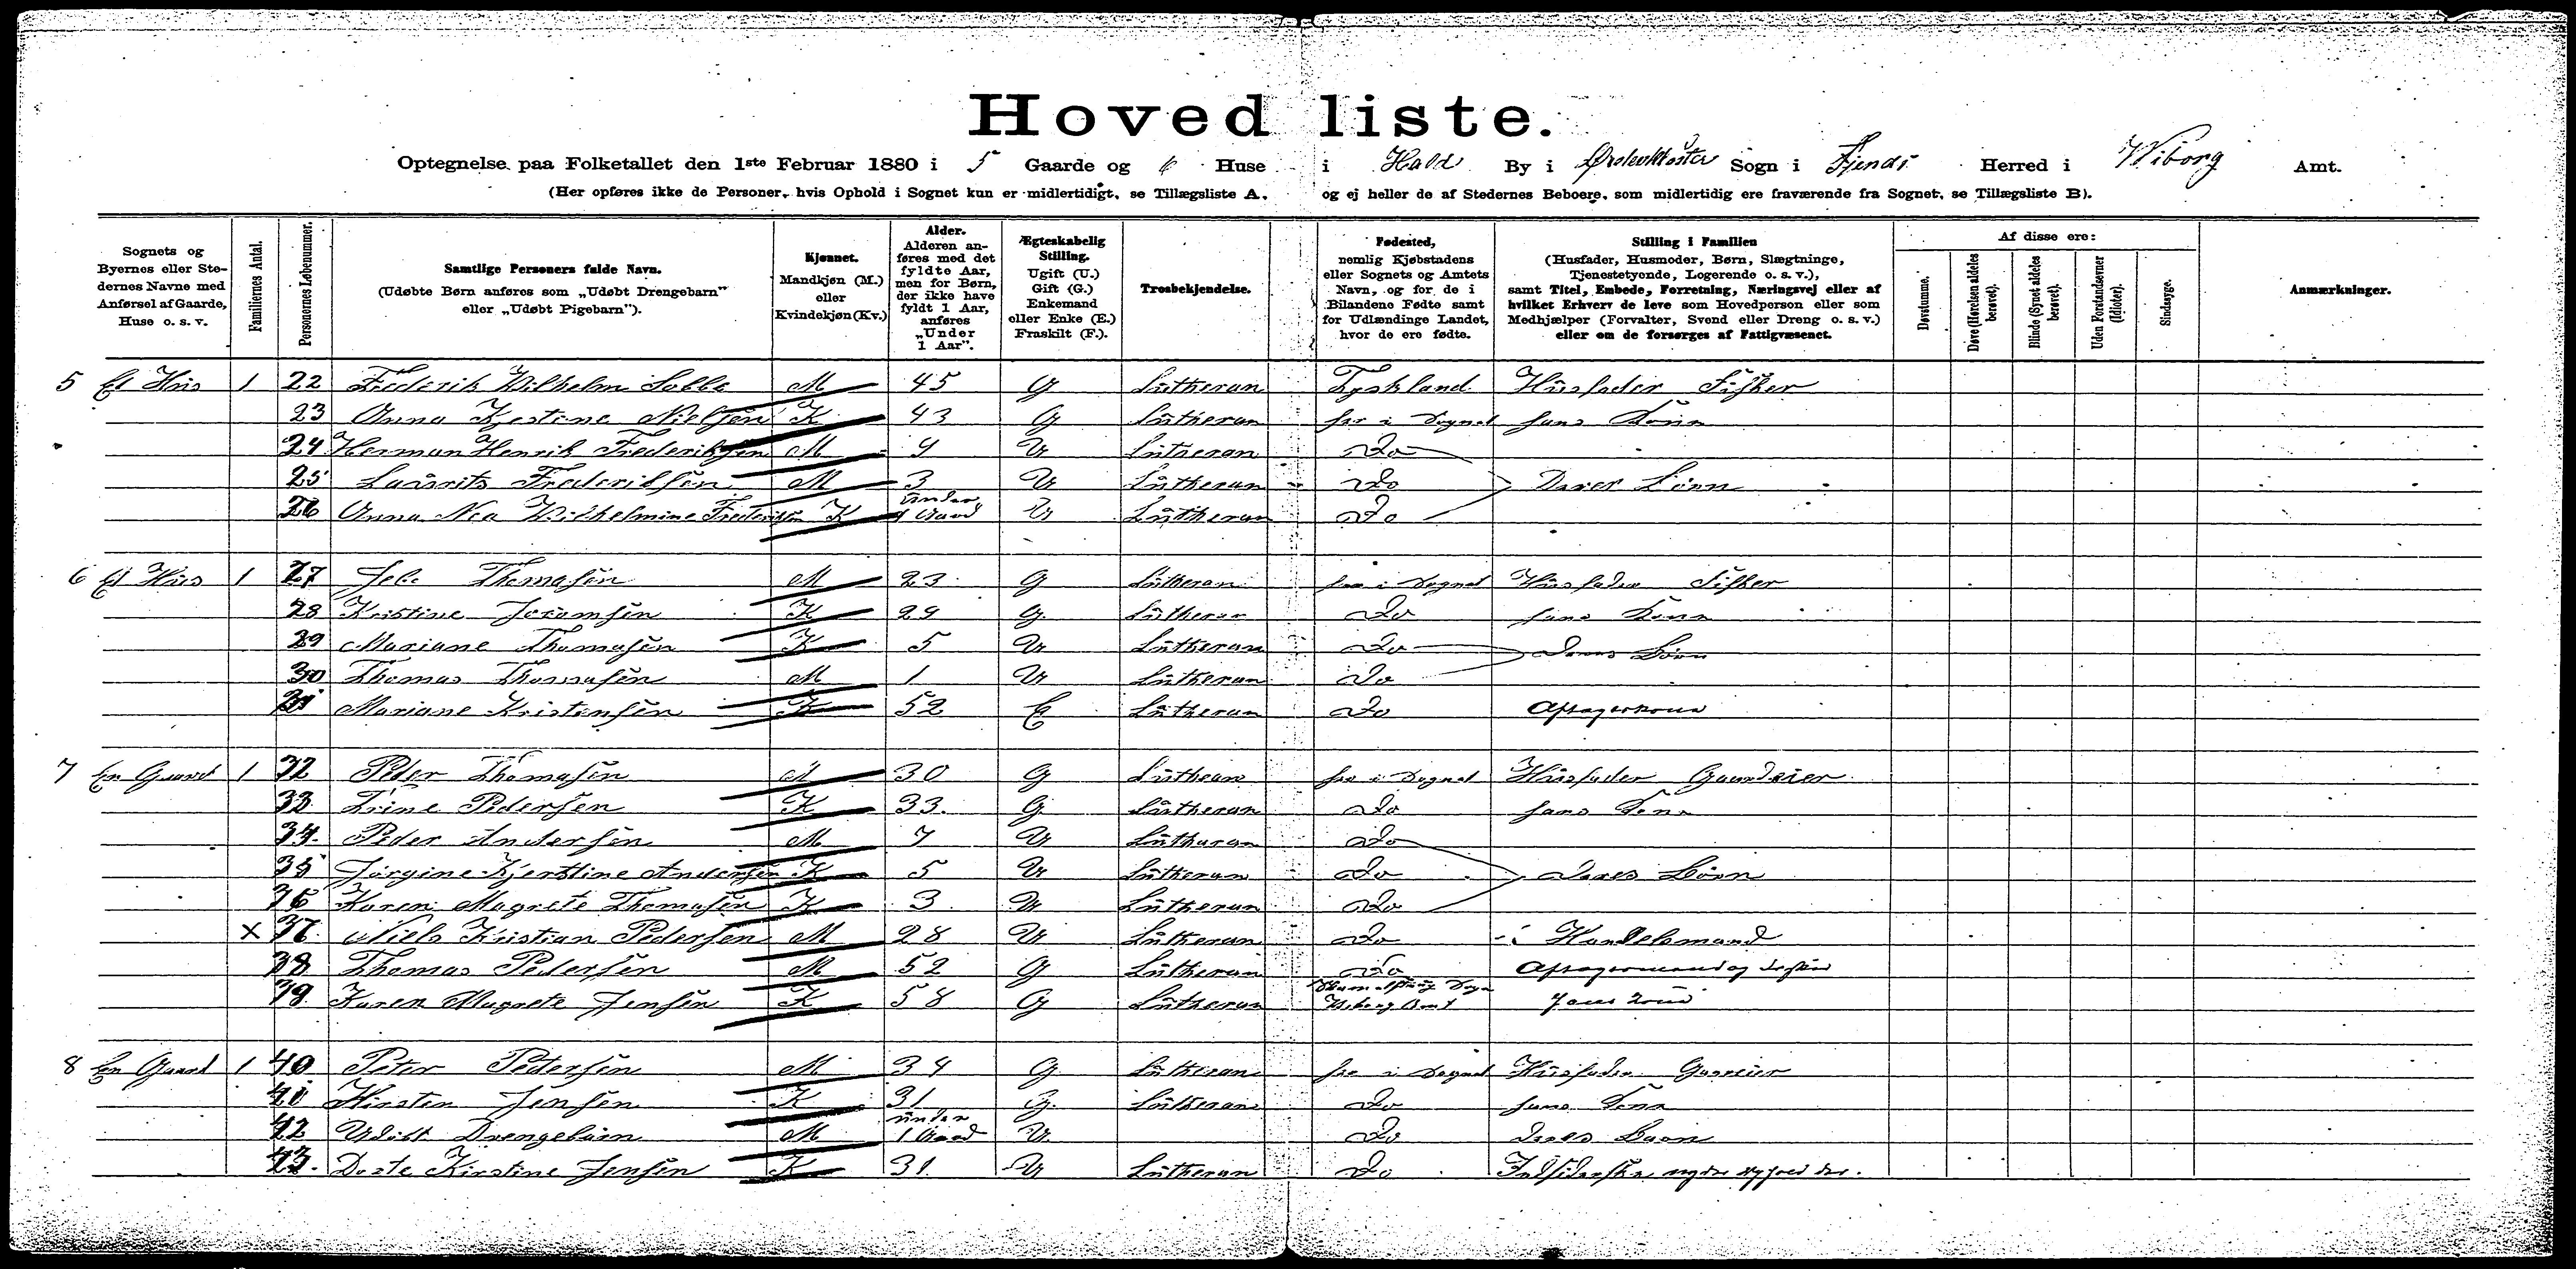 Hovedliste.
Optegnelse paa Folketallet den 1ste Februar 1880 i 5 Gaarde og 6 Huse i Hald By i Sogn i Fjends Herred i Wiborg Amt.
(Her opføres ikke de Personer, hvis Ophold i Sognet kun er midlertidigt, se Tillægsliste A, og ej heller de af Stedernes Beboere, som midlertidig ere fraværende fra Sognet, se Tillægsliste B).
Sognets og Byernes eller Stedernes Navne med Anførsel af Gaarde, Huse o. s. v.
Familiernes Antal.
Personernes Løbenummer.
Samtlige Personers fulde Navn. (Udøbte Børn anføres som „Udøbt Drengebarn" eller „Udøbt Pigebarn").
Kjønnet. Mandkjøn (M.) eller Kvindekjøn (Kv.)
Alder. Alderen anføres med det fyldte Aar, men for Børn, der ikke have fyldt 1 Aar, anføres „Under 1 Aar".
Ægteskabelig Stilling. Ugift (U.) Gift (G.) Enkemand eller Enke (E.) Fraskilt (F.).
Trosbekjendelse.
Fødested, nemlig Kjøbstadens eller Sognets og Amtets Navn, og for de i Bilandene Fødte samt for Udlændinge Landet, hvor de ere fødte.
Stilling i Familien (Husfader, Husmoder, Børn, Slægtninge, Tjenestetyende, Logerende o. s. v.), samt Titel, Embede, Forretning, Næringsvej eller af hvilket Erhverv de leve som Hovedperson eller som Medhjælper (Forvalter, Svend eller Dreng o. s. v.) eller om de forsørges af Fattigvæsenet.
Af disse ere:
Døvstumme.
Døve (Hørelsen aldeles berøvet).
Blinde (Synet aldeles berøvet).
Uden Forstandsevner (Idioter).
Sindssyge.
Anmærkninger.
5 Et Hus 1 22 Frederik Wilhelm M 45 G Lutheran Tyskland Husfader Fisker
23 Anna Kjestine Nielsen K 43 G Lutheran her i Sognet hans Kone
24 Herman Henrik Frederiksen M 9 U Lutheran Do
25 Laurits Frederiksen M 3 U Lutheran Do Deres Børn
26 Anna Wilhelmine Frederiksen K under 1 Aar U Lutheran Do
6 Et Hus 1 27 Thomasen M 23 G Lutheran her i Sognet Husfader Fisker
28 Kristine K 29 G Lutheran Do hans Kone
29 Mariane Thomasen K 5 U Lutheran Do Deres Børn
30 Thomas Thomasen M 1 U Lutheran Do
31 Mariane Kristensen K 52 E Lutheran Do Aftægtskone
7 En Gaard 1 32 Peder Thomasen M 30 G Lutheran her i Sognet Husfader Gaardeier
33 Trine Pedersen K 33. G Lutheran Do hans Kone
34 Peder Andersen M 7 U Lutheran Do
35 Jørgine Kjerstine Andersen K 5 U Lutheran Do Deres Børn
36 Karen Magrete Thomasen K 3 U Lutheran Do
X 37 Niels Kristian Pedersen M 28 U Lutheran Do Handelsmand
38 Thomas Pedersen M 52 G Lutheran Do Aftægtsmand og
39 Karen Magrete Jensen K 58 G Lutheran Sogn Viborg Amt hans Kone
8 En Gaard 1 40 Peter Pedersen M 34 G Lutheran her i Sognet Husfader Gaardeier
41 Kirsten Jensen K 31 G Lutheran Do hans Kone
42 Udøbt Drengebarn M under 1 Aar U Do Deres Barn
43 Dorte Kirstine Jensen K 31. U Lutheran Do